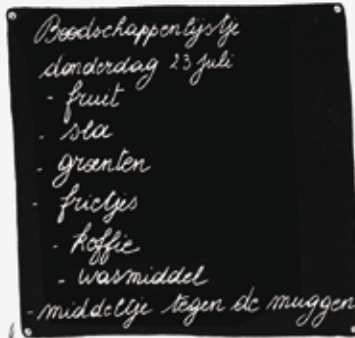 Boodschappenlijstje
donderdag 23 juli
- fruit
- sla
- groenten
- frietjes
- koffie
- wasmiddel
- middeltje tegen de muggen